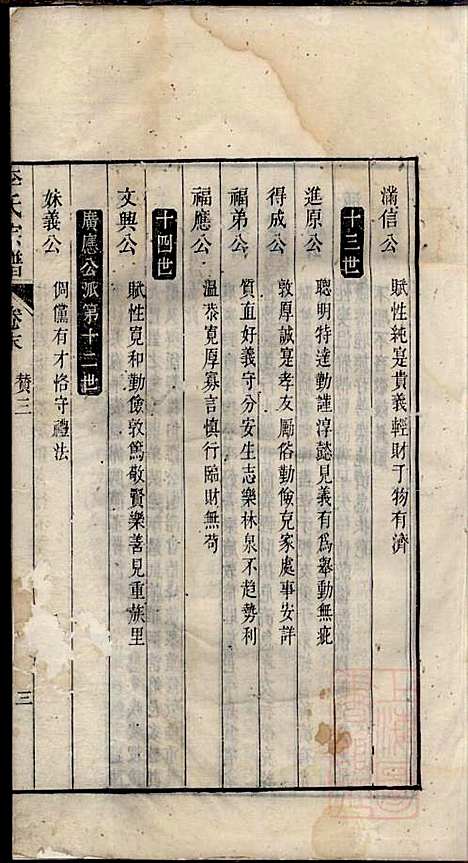 滿信公
賦性純寔貴義輕財于物有濟
十三世
進原公
聰明特達勤謹淳懿見義有為舉動無疵
得成公
敦厚誠寔孝友勵俗勤儉克家處事安詳
福弟公
質直好義守分安生志樂林泉不趋勢利
福應公
溫恭寬厚寡言慎行臨財無苟
十四世
文興公
賦性寬和勤儉敦篤敬賢樂善見重族里
廣應公派第十二世
妹義公
倜儻有才恪守禮法
李氏宗譜
卷末
贊三
三